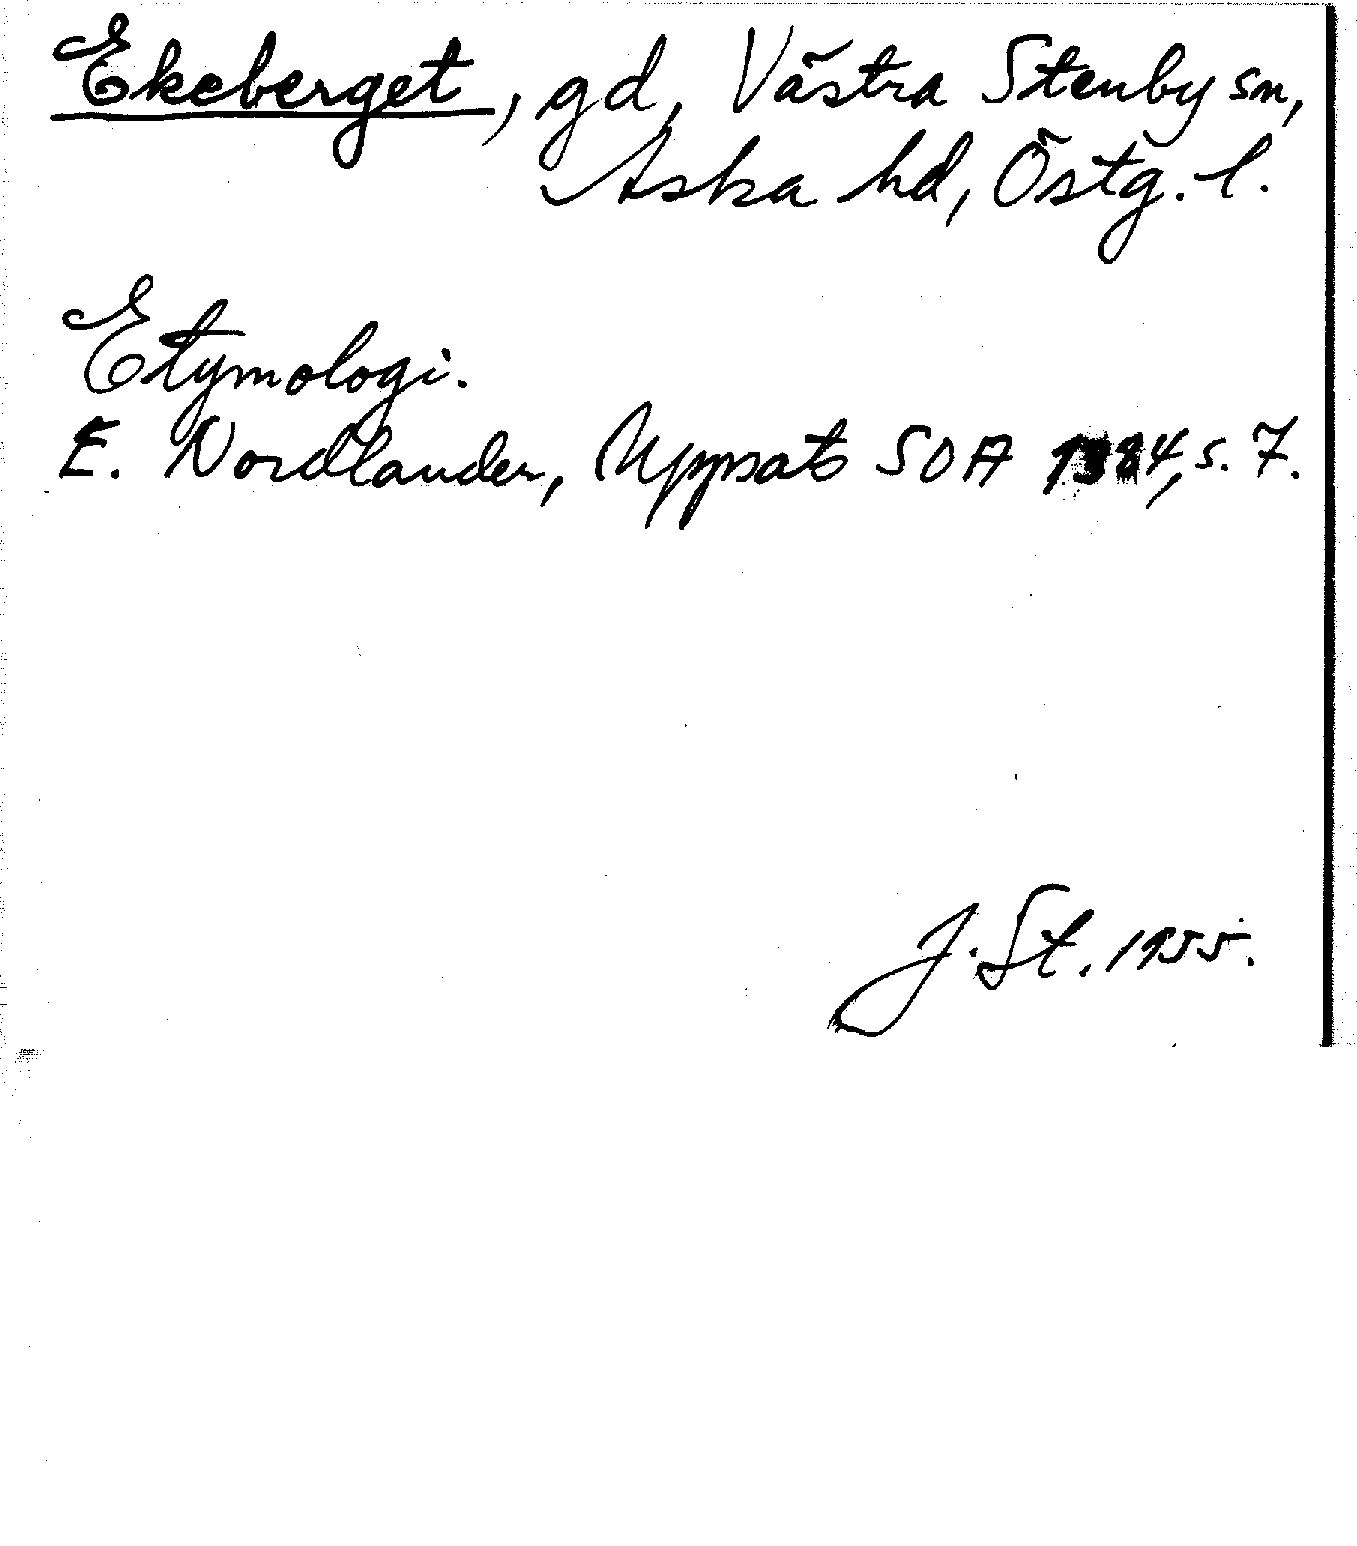 Ekeberget, gd, Västra Stenby sn,
Aska hd, Östg. l.
Etymologi.
E. Nordlander, Uppsats SOA s. 7.
J. St. 1955.